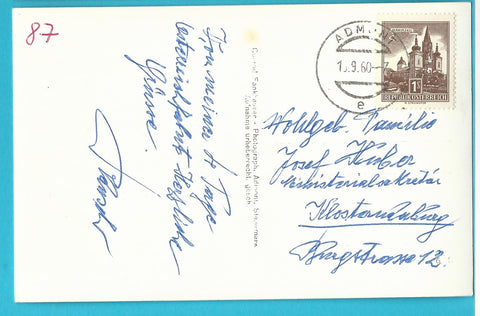 87
Von meiner 4 Tage
Herzliche
Grüsse
Conrad Fankhauser - Photograph, Admont, Steiermark
Aufnahme unberechtt. gesch.
ADMONT
9.60
e
MARIAZELL
1S
REPUBLIK ÖSTERREICH
Wohlgeb. Familie
Josef Huber
Ministerialsekretär
Klosterneuburg
Burgstrasse 12.